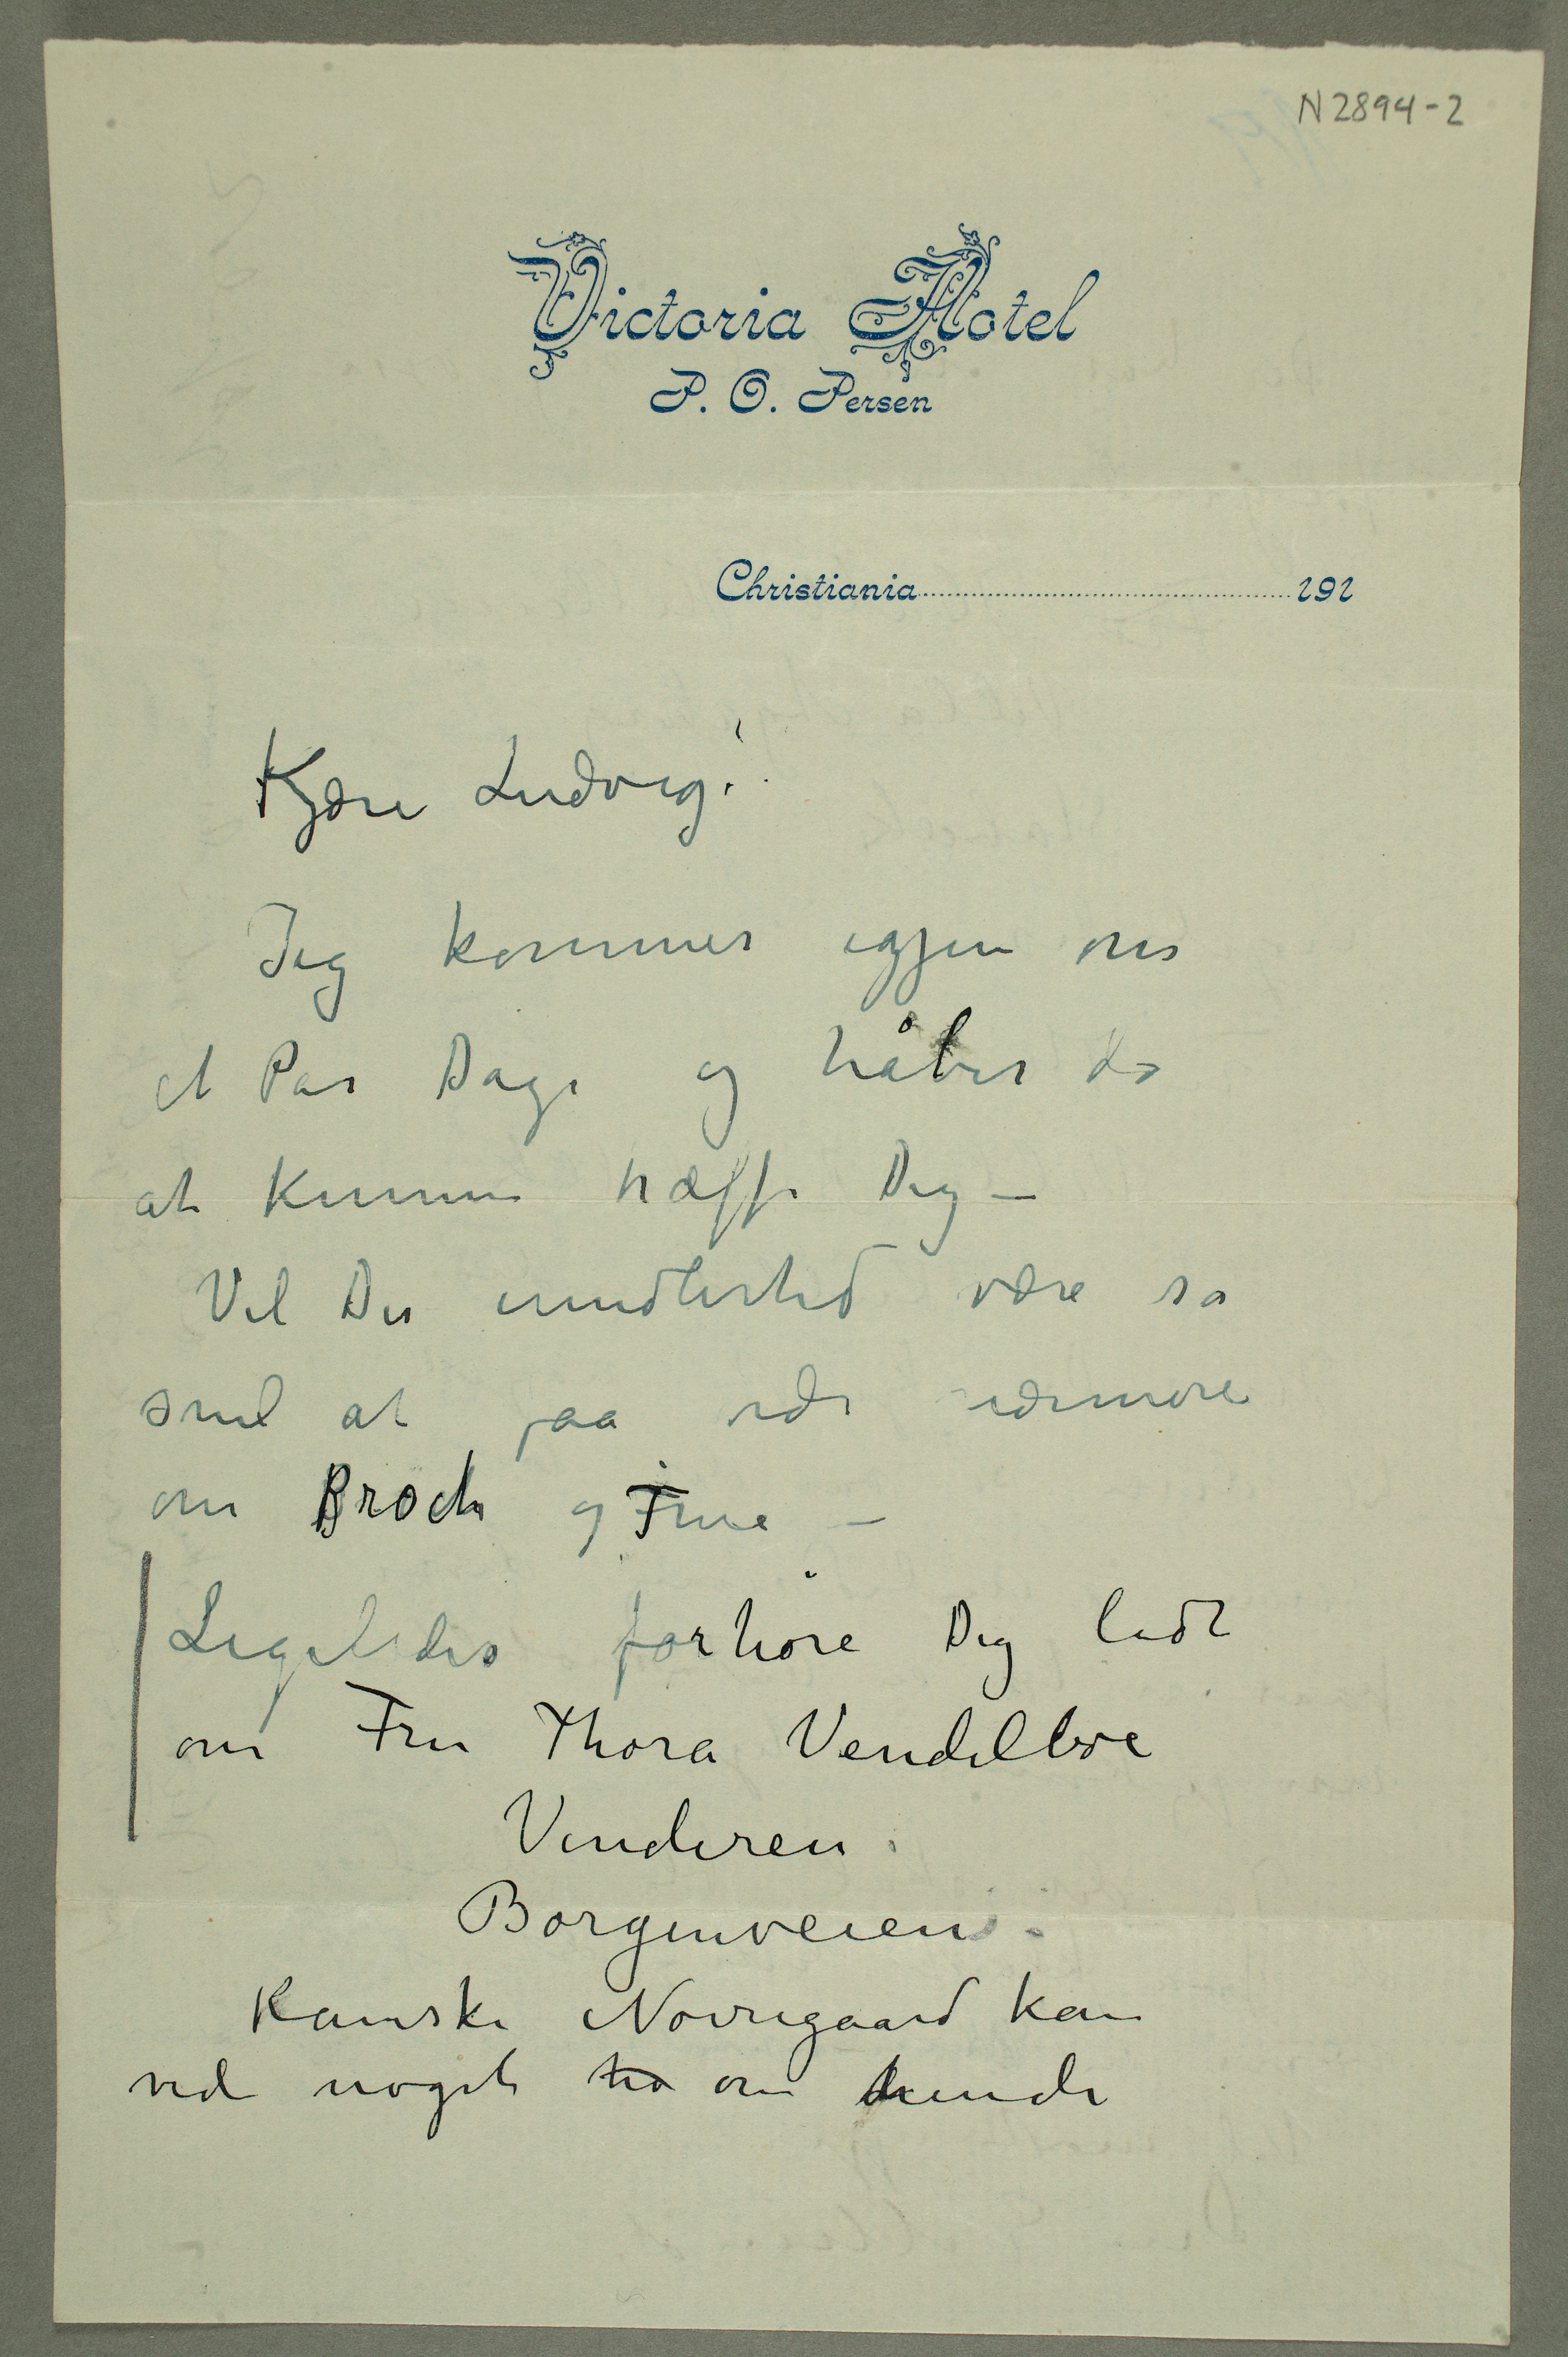 N 2894-2
Victoria Hotel
P. O. Persen
Christiania 191
Kjære Ludvig!
Jeg kommer igjen om
et Par Dage og håber da
at kunne træffe Dig –
Vil Du imidlertid være så
snil at faa vide nærmere
om Broch og Frue –
Ligeledes forhøre Dig lidt
om Fru Thora Vendelboe
Vinderen.
Borgenveien.
Kanske Nørregaard kan
vide noget ha om hende